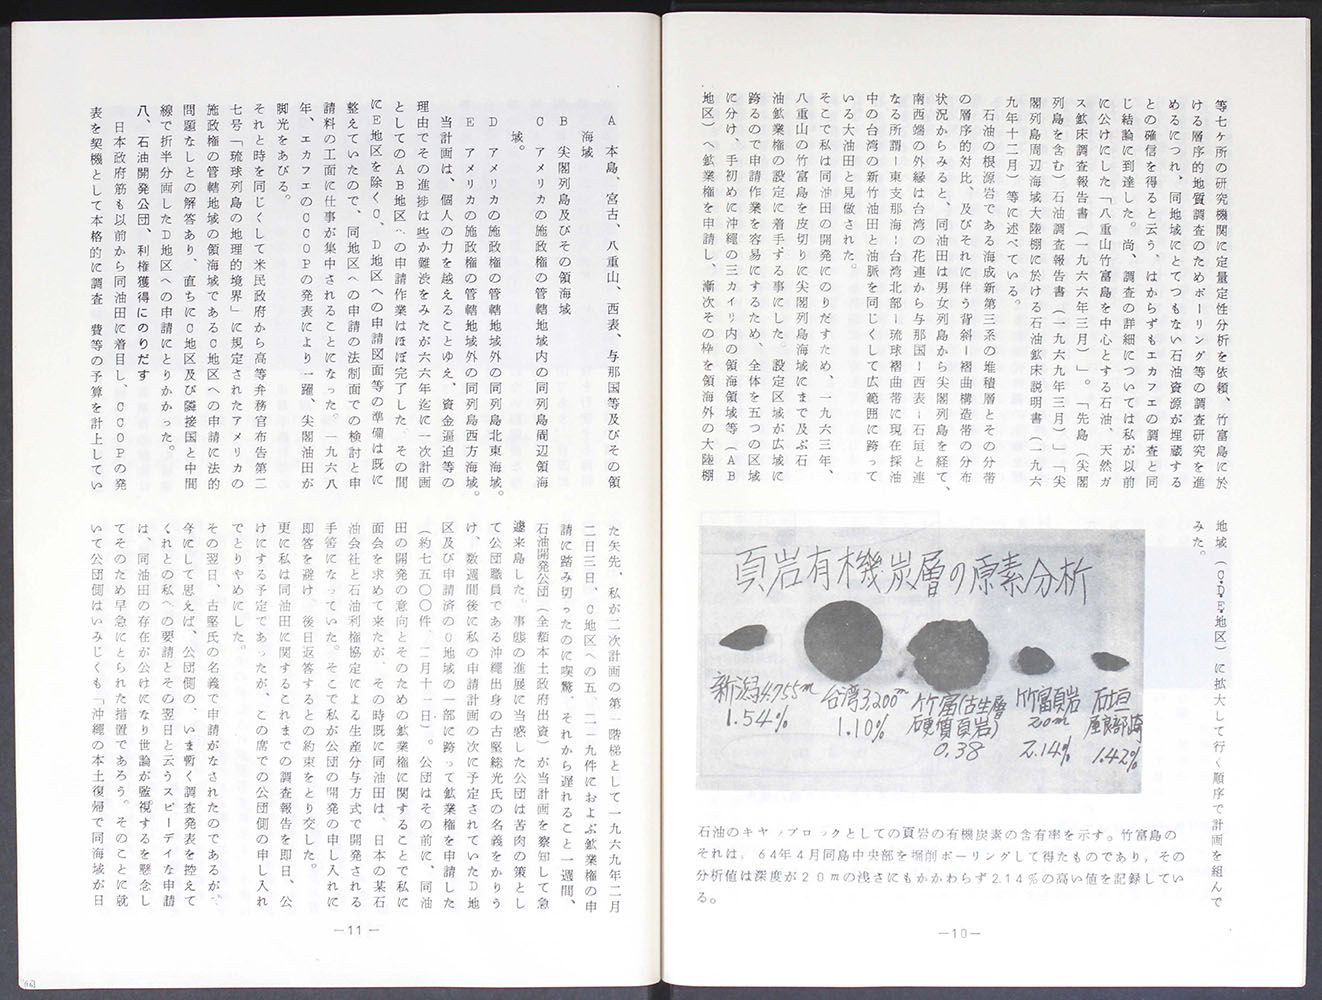 等七ヶ所の研究機関に定量定性分析を依頼、竹富島に於
ける層序的地質調査のためボーリング等の調査研究を進
めるにつれ、同地域にとてつもない石油資源が埋蔵する
との確信を得ると云う、はからずもエカフエの調査と同
じ結論に到達した。尚、調査の詳細については私が以前
に公けにした「八重山竹富島を中心とする石油、天然ガ
ス鉱床調査報告書（一九六六年三月）」。「先島（尖閣
列島を含む）石油調査報告書（一九六九年三月）」「尖
閣列島周辺海域大陸棚に於ける石油鉱床説明書（一九六
九年十二月）等に述べている。
石油の根源岩である海成新第三系の堆積層とその分帯
の層序的対比、及びそれに伴う背斜ー褶曲構造帯の分布
状況からみると、同油田は男女列島から尖閣列島を経て、
南西端の外縁は台湾の花連から与那国ー西表ー石垣と連
なる所謂ー東支那海ー台湾北部ー琉球褶曲帯に現在採油
中の台湾の新竹油田と油脈を同じくして広範囲に跨って
いる大油田と見做された。
そこで私は同油田の開発にのりだすため、一九六三年、
八重山の竹富島を皮切りに尖閣列島海域にまで及ぶ石
油鉱業権の設定に着手する事にした。設定区域が広域に
跨るので申請作業を容易にするため、全体を五つの区域
に分け、手初めに沖縄の三カイリ内の領海領域等（AB
地区）へ鉱業権を申請し、漸次その枠を領海外の大陸棚
地域（C・D・E・地区）に拡大して行く順序で計画を組んで
みた。
頁岩有機炭層の原素分析
新潟4,755m
1.54%
台湾3,200m
1.10%
竹富（古生層
硬質頁岩）
0.38
竹富頁岩
200m
2.14%
石垣
屋良部崎
1.42%
石油のキヤップロックとしての頁岩の有機炭素の含有率を示す。竹富島の
それは、64年4月同島中央部を堀削ボーリングして得たものであり，その
分析値は深度が20mの浅さにもかかわらず2.14%の高い値を記録してい
る。
―10―
A 本島、宮古、八重山、西表、与那国等及びその領
海域
B 尖閣列島及びその領海域
C アメリカの施政権の管轄地域内の同列島周辺領海
域。
D アメリカの施政権の管轄地域外の同列島北東海域。
E アメリカの施政権の管轄地域外の同列島西方海域。
当計画は、個人の力を越えることゆえ、資金逼迫等の
理由でその進捗は些か難渋をみたが六六年迄に一次計画
としてのAB地区への申請作業はほぼ完了した。その間
にE地区を除くC、D地区への申請図面等の準備は既に
整えていたので、同地区への申請の法制面での検討と申
請料の工面に仕事が集中されることになった。一九六八
年、エカフエのCCOPの発表により一躍、尖閣油田が
脚光をあびる。
それと時を同じくして米民政府から高等弁務官布告第二
七号「琉球列島の地理的境界」に規定されたアメリカの
施政権の管轄地域の領海域であるC地区への申請に法的
問題なしとの解答あり、直ちにC地区及び隣接国と中間
線で折半分画したD地区への申請にとりかかった。
八、石油開発公団、利権獲得にのりだす
日本政府筋も以前から同油田に着目し、CCOPの発
表を契機として本格的に調査 費等の予算を計上してい
た矢先、私が二次計画の第一階梯として一九六九年二月
二日三日、C地区への五、二一九件におよぶ鉱業権の申
請に踏み切ったのに喫驚、それから遅れること一週間、
石油開発公団（全額本土政府出資）が当計画を察知して急
遽来島した。事態の進展に当惑した公団は苦肉の策とし
て公団職員である沖縄出身の古堅総光氏の名義をかりう
け、数週間後に私の申請計画の次に予定されていたD地
区及び申請済のC地域の一部に跨って鉱業権を申請した
（約七五〇〇件、二月十一日）。公団はその前に、同油
田の開発の意向とそのための鉱業権に関することで私に
面会を求めて来たが、その時既に同油田は、日本の某石
油会社と石油利権協定による生産分与方式で開発される
手筈になっていた。そこで私が公団の開発の申し入れに
即答を避け、後日返答するとの約束をとり交した。
更に私は同油田に関するこれまでの調査報告を即日、公
けにする予定であったが、この席での公団側の申し入れ
でとりやめにした。
その翌日、古堅氏の名義で申請がなされたのであるが、
今にして思えば、公団側の、いま暫く調査発表を控えて
くれとの私への要請とその翌日と云うスピーデイな申請
は、同油田の存在が公けになり世論が監視するを懸念し
てそのため早急にとられた措置であろう。そのことに就
いて公団側はいみじくも「沖縄の本土復帰で同海域が日
―11―